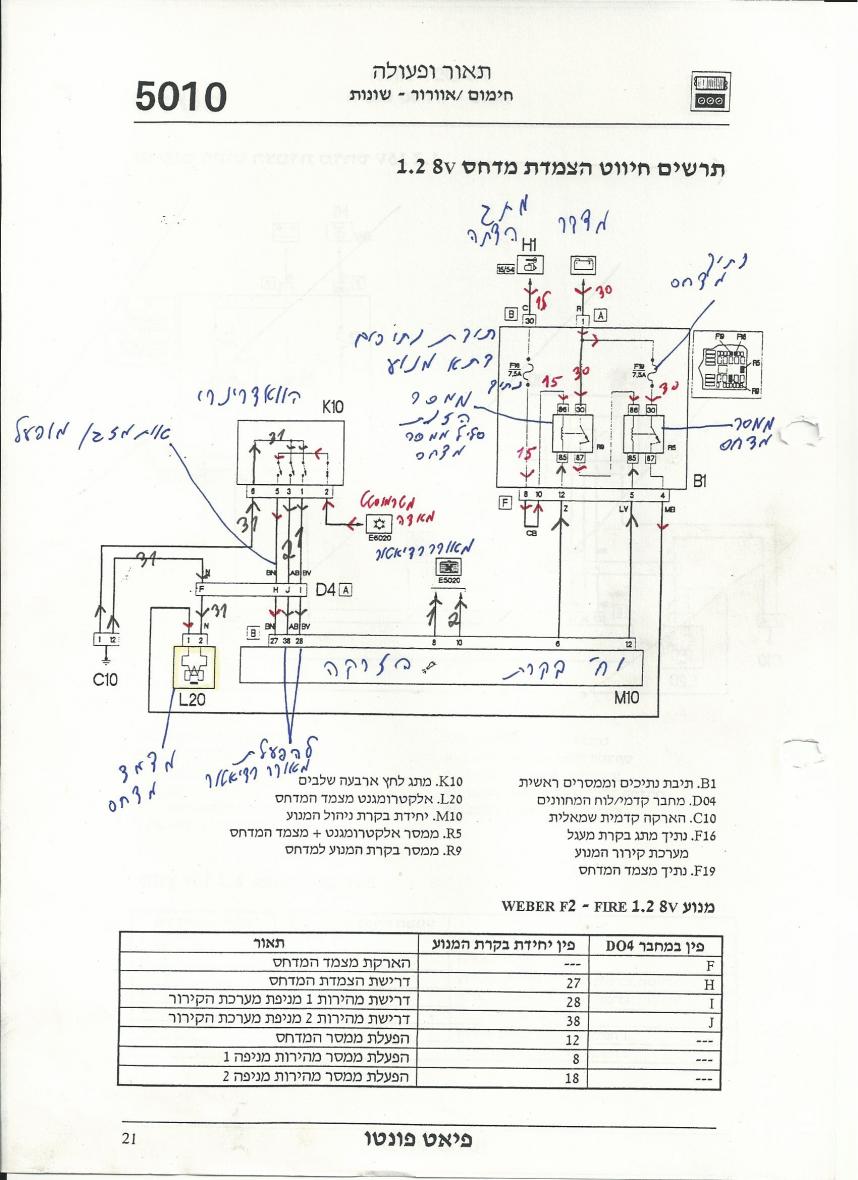 תאור ופעולה
חימום /אוורור - שונות
5010
תרשים חיווט הצמדת מדחס 1.2 8V
מתג
הצתה
מדדר
H1
15/54
15
30
נתיך
מדחס
B
C
30
R
1
A
תיבת נתיכים
תא מנוע
F16
7,5A
נתיך
F19
7,5A
F19
F16
R5
R9
15
30
30
86
30
86
30
ממסר
הזנת
סליל ממסר
מדחס
ממסר
מדחס
R9
R5
85
87
85
87
15
B1
F
8
10
12
5
4
CB
Z
LV
MB
הוואדרינרי
K10
31
6
5
3
1
2
אות מזגן מופעל
31
21
טרמוסטט
מאדה
E6020
מאוורר רדיאטור
E5020
31
N
BN
AB
BV
F
H
J
I
D4
A
31
N
BN
AB
BV
1
2
1
12
1
2
B
27
38
28
8
10
6
12
C10
L20
יח' בקרת הזרקה
M10
מצמד
מדחס
להפעלת
מאוורר רדיאטור
B1. תיבת נתיכים וממסרים ראשית
D04. מחבר קדמי/לוח המחוונים
C10. הארקה קדמית שמאלית
F16. נתיך מתג בקרת מעגל
מערכת קירור המנוע
F19. נתיך מצמד המדחס
K10. מתג לחץ ארבעה שלבים
L20. אלקטרומגנט מצמד המדחס
M10. יחידת בקרת ניהול המנוע
R5. ממסר אלקטרומגנט + מצמד המדחס
R9. ממסר בקרת המנוע למדחס
מנוע WEBER F2 - FIRE 1.2 8V
פין במחבר DO4 פין יחידת בקרת המנוע תאור
F --- הארקת מצמד המדחס
H 27 דרישת הצמדת המדחס
I 28 דרישת מהירות 1 מניפת מערכת הקירור
J 38 דרישת מהירות 2 מניפת מערכת הקירור
--- 12 הפעלת ממסר המדחס
--- 8 הפעלת ממסר מהירות מניפה 1
--- 18 הפעלת ממסר מהירות מניפה 2
פיאט פונטו
21